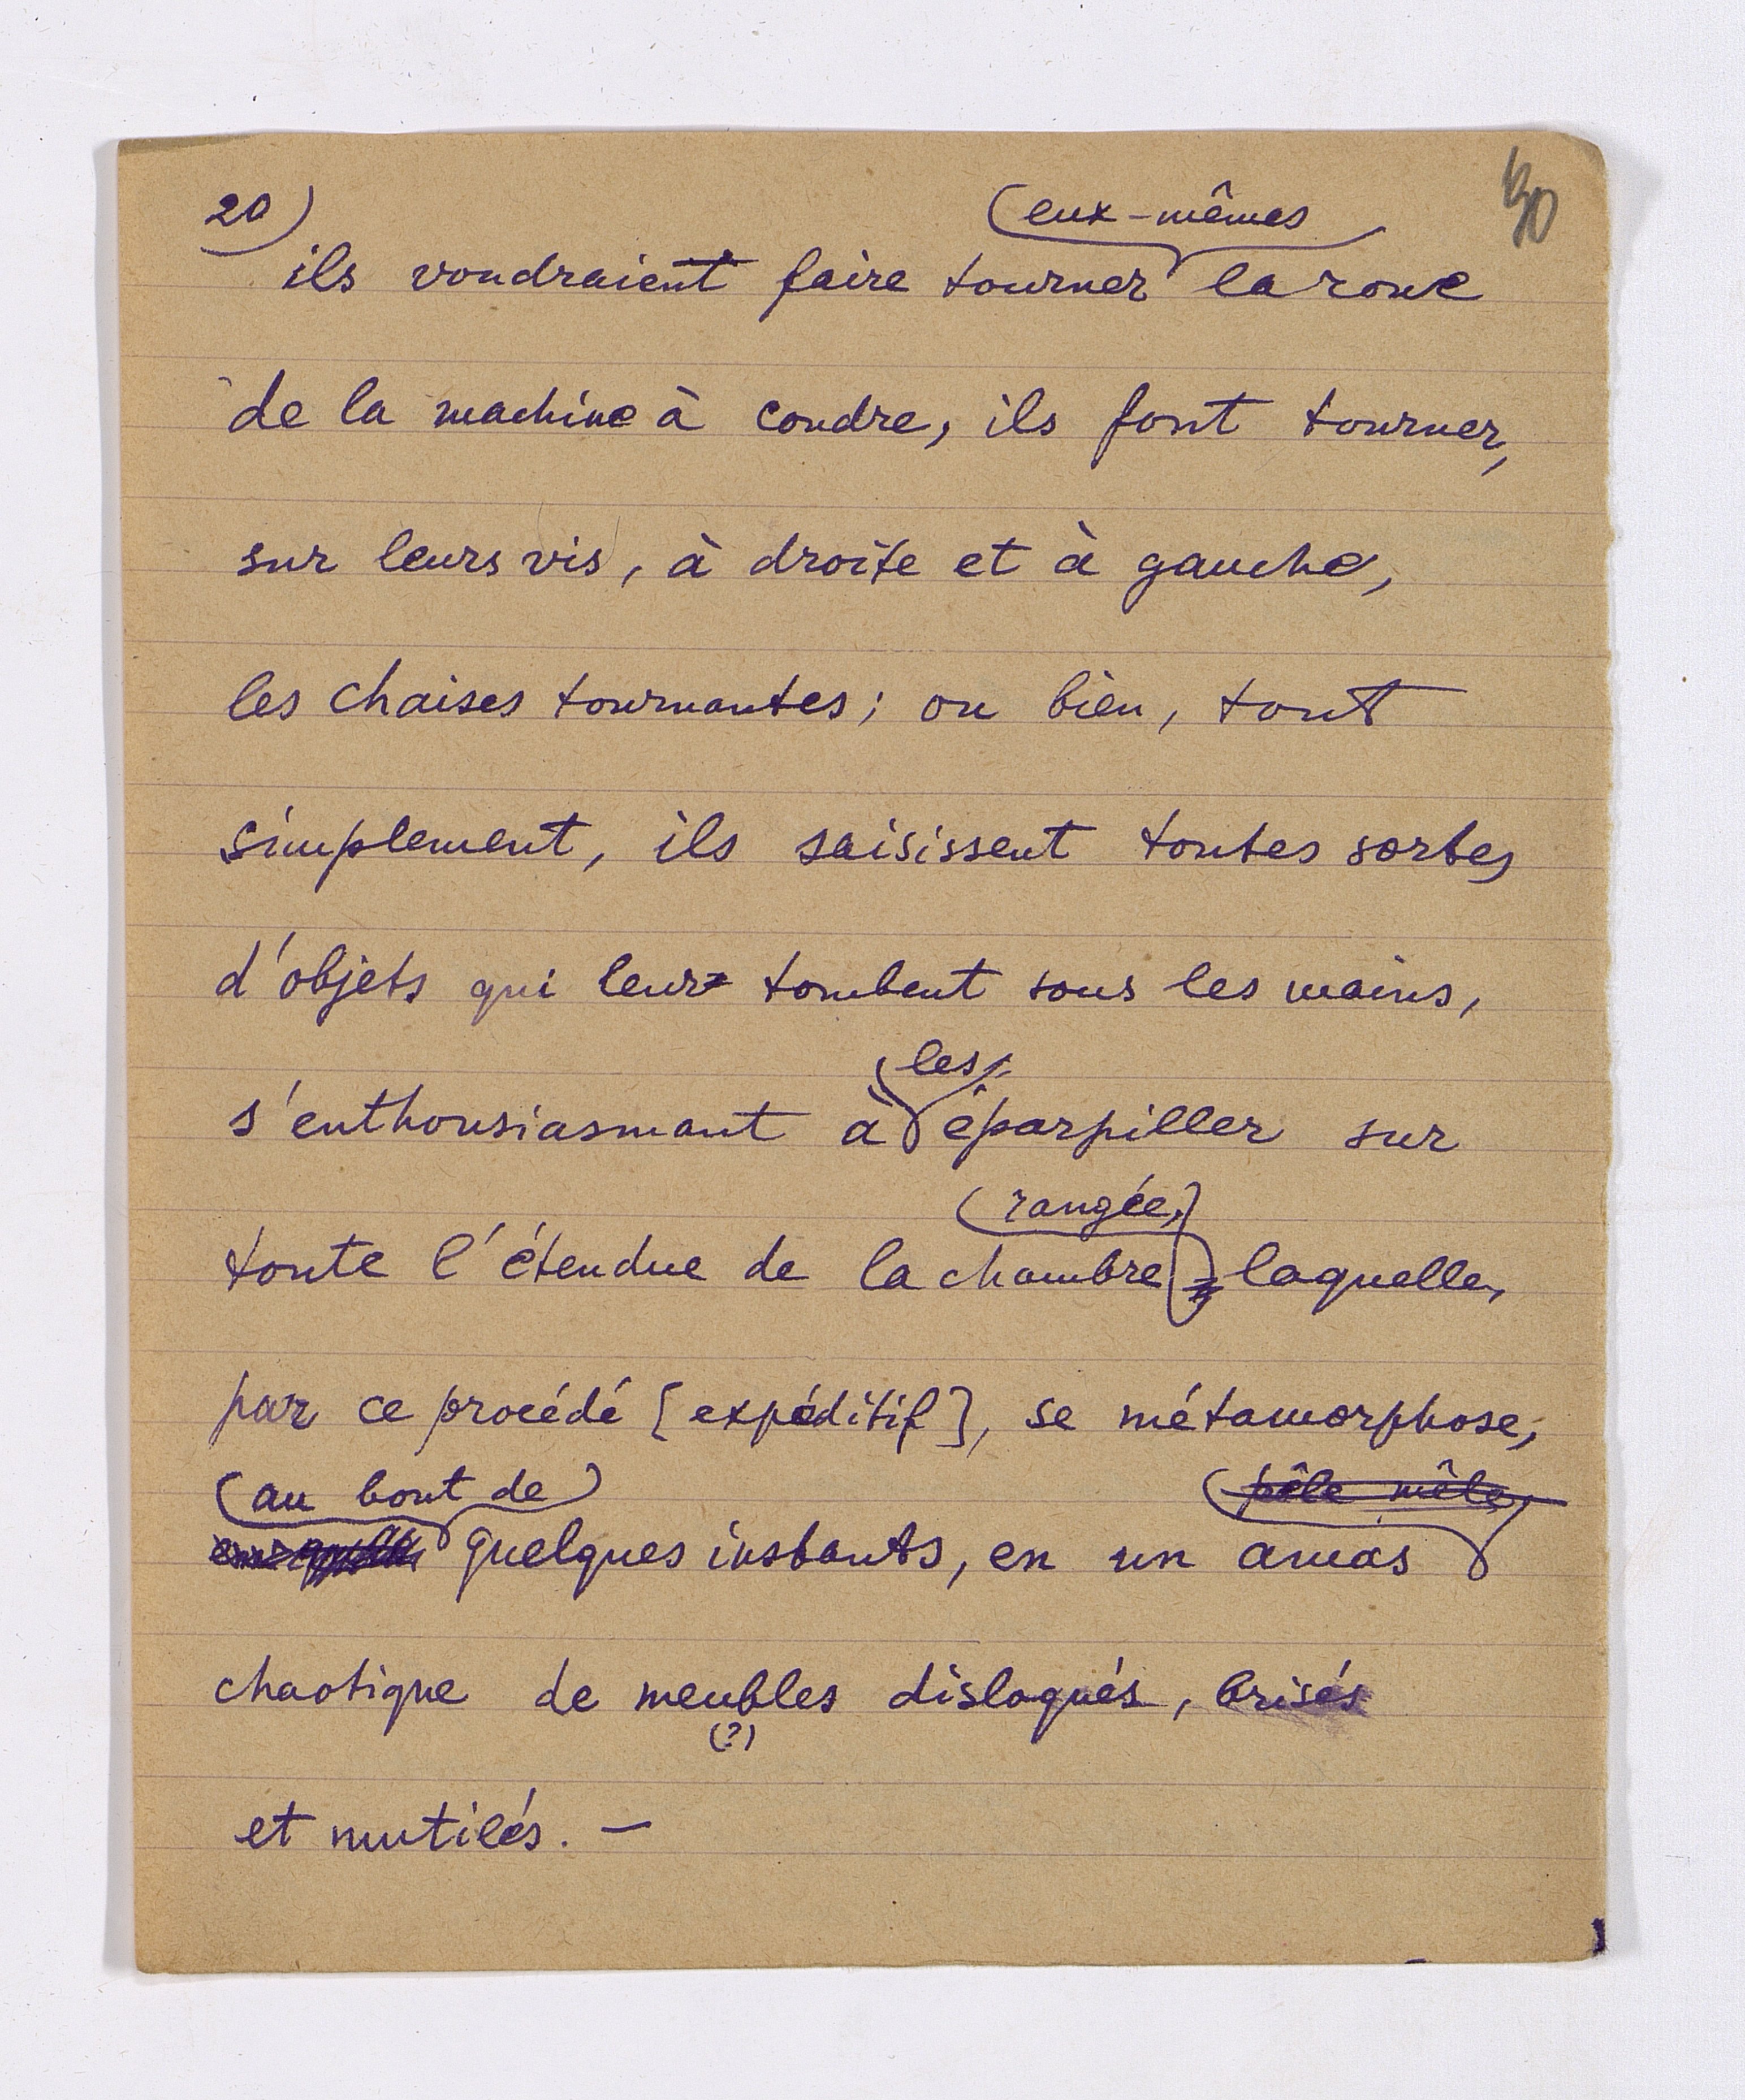 20)
30
(eux-mêmes
ils voudraient faire tourner la roue
de la machine à coudre, ils font tourner,
sur leurs vis, à droite et à gauche,
les chaises tournantes; ou bien, tout
simplement, ils saisissent toutes sortes
d'objets qui leur tombent sous les mains,
(les
s'enthousiasmant à éparpiller sur
(rangée,)
toute l'étendue de la chambre laquelle,
par ce procédé [expéditif], se métamorphose,
(au bout de) (pêle mêle,
quelques instants, en un amas
chaotique de meubles disloqués, brisés
(?)
et mutilés. —